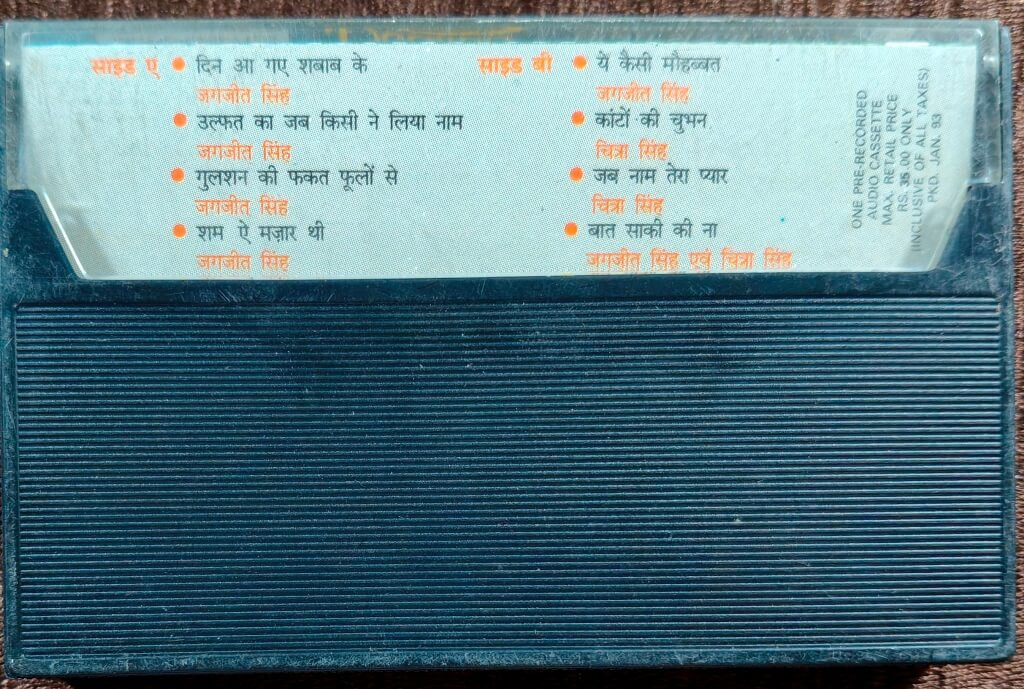 साइड ऐ
दिन आ गए शबाब के
जगजीत सिंह
उल्फत का जब किसी ने लिया नाम
जगजीत सिंह
गुलशन की फकत फूलों से
जगजीत सिंह
शम ऐ मज़ार थी
जगजीत सिंह
साइड बी
ये कैसी मौहब्बत
जगजीत सिंह
कांटों की चुभन
चित्रा सिंह
जब नाम तेरा प्यार
चित्रा सिंह
बात साकी की ना
जगजीत सिंह एवं चित्रा सिंह
ONE PRE-RECORDED
AUDIO CASSETTE
MAX. RETAIL PRICE
RS. 35.00 ONLY
(INCLUSIVE OF ALL TAXES)
PKD. JAN. 93